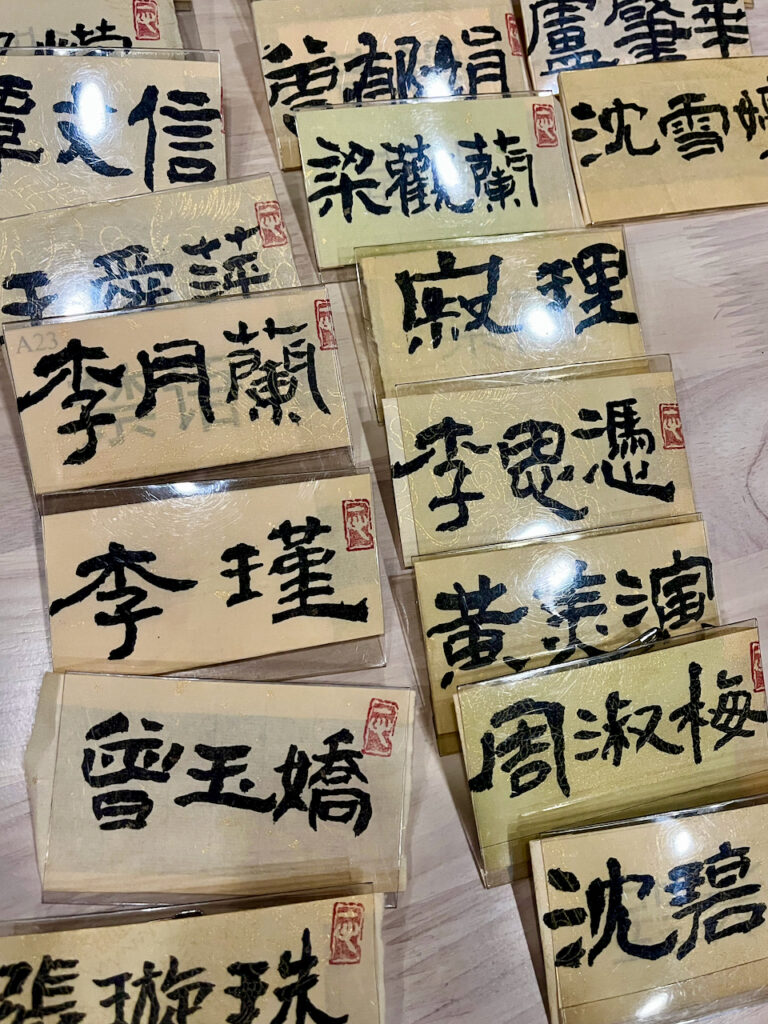 文信
舜萍
A23
李月蘭
李瑾
曾玉嬌
張璇珠
郁娟
盧肇華
梁觀蘭
沈雪
寂理
李思憑
黃美演
周淑梅
沈碧